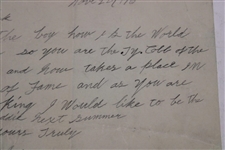 the boy how is the World
so you are the .Ty. Cobb of the
and how takes a place in
of Fame and as you are
king I Would like to be the
next Summer
ours Truly